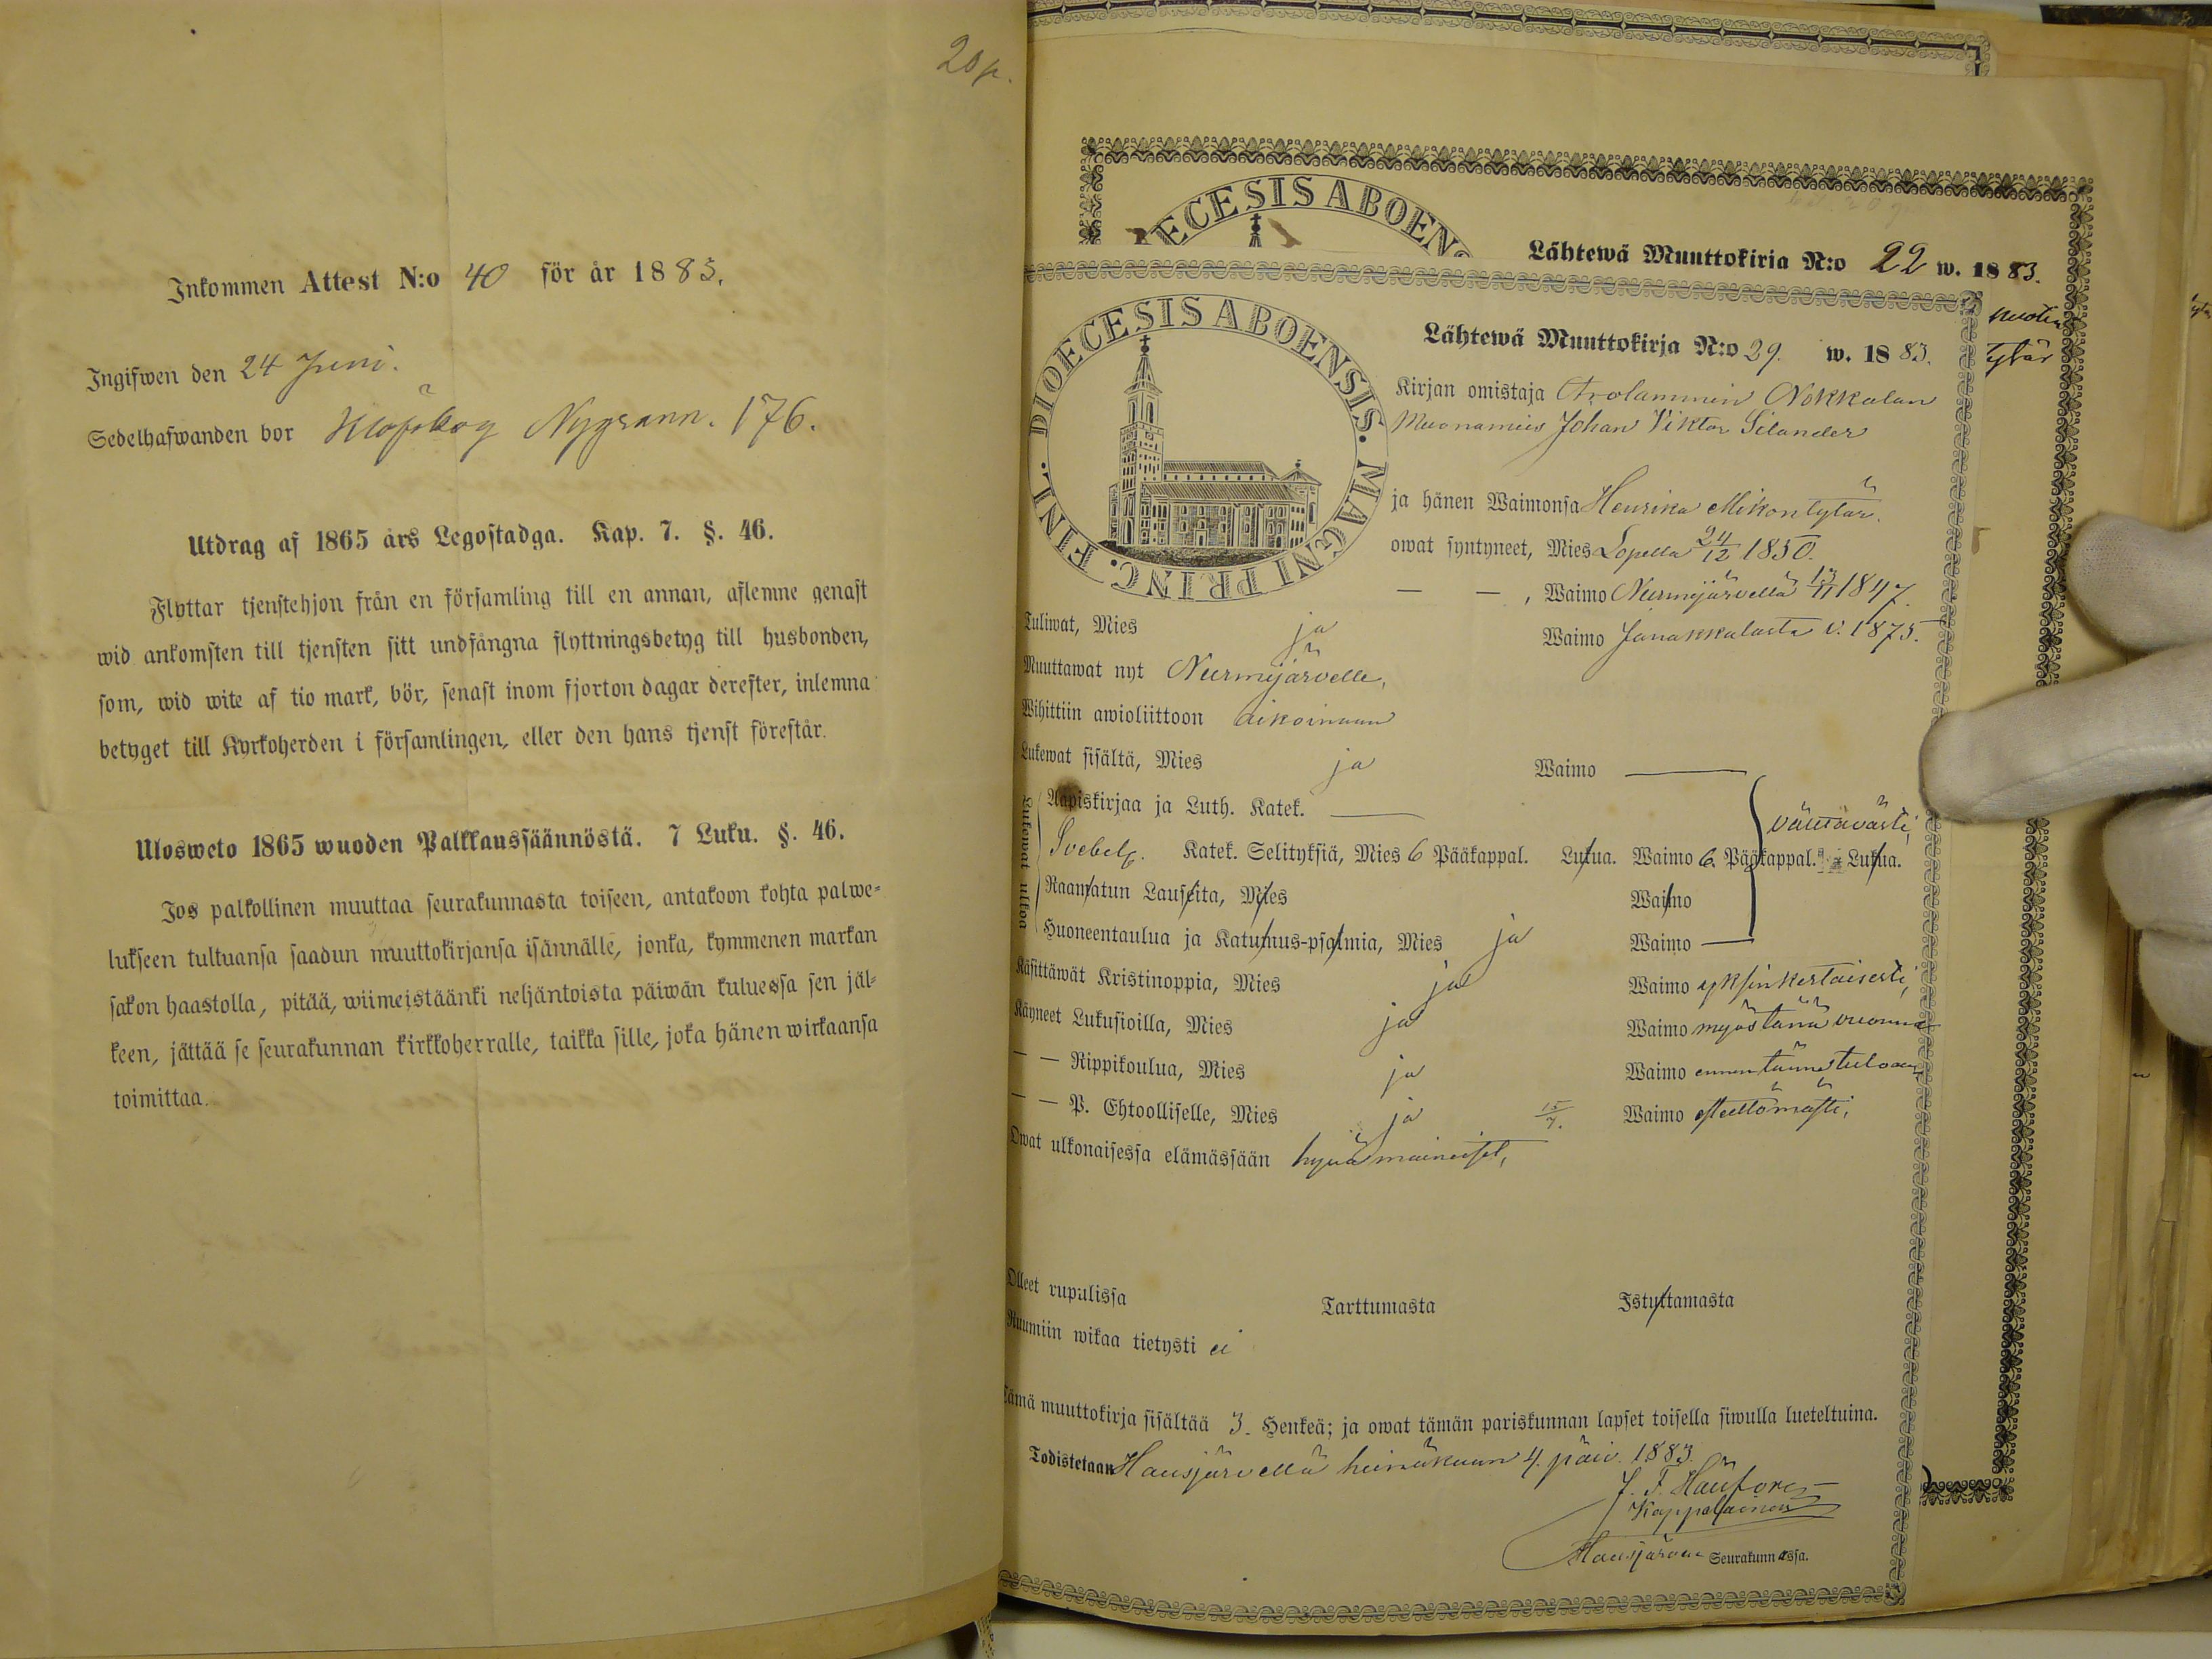 20 p.
Inkommen Attest N:o 40 för år 1883.
Ingifwen den 24 Juni.
Sedelhafwanden bor Klöfskog Nygrann. 176.
Utdrag af 1865 års Legostadga. Kap. 7. §. 46.
Flyttar tjenstehjon från en församling till en annan, aflemne genast
wid ankomsten till tjensten sitt undfångna flyttningsbetyg till husbonden,
som, wid wite af tio mark, bör, senast inom fjorton dagar derefter, inlemna
betyget till Kyrkoherden i församlingen, eller den hans tjenst förestår.
Ulosweto 1865 wuoden Palkkaussäännöstä. 7 Luku. §. 46.
Jos palkollinen muuttaa seurakunnasta toiseen, antakoon kohta palwe-
lukseen tultuansa saadun muuttokirjansa isännälle, jonka, kymmenen markan
sakon haastolla, pitää, wiimeistäänki neljäntoista päiwän kuluessa sen jäl-
keen, jättää se seurakunnan kirkkoherralle, taikka sille, joka hänen wirkaansa
toimittaa.
ECESIS ABOEN
Lähtewä Muuttokirja N:o 22 w. 1883.
tytär
DIOECESIS ABOENSIS. MAGNI PRINC. FINL.
Lähtewä Muuttokirja N:o 29. w. 1883.
Kirjan omistaja Arolammin Nokkalan
Muonamies Johan Viktor Silander
ja hänen Waimonsa Henrika Mikontytär.
owat syntyneet, Mies Lopella 24/12 1850.
— — , Waimo Nurmijärvellä 13/11 1847.
Tuliwat, Mies ja Waimo Janakkalasta v. 1875.
Muuttawat nyt Nurmijärvelle,
Wihittiin awioliittoon aikoinaan
Lukewat sisältä, Mies ja Waimo —
Lukewat ulkoa
Aapiskirjaa ja Luth. Katek. —
välttävästi,
Svebelg. Katek. Selityksiä, Mies 6 Pääkappal. Lukua. Waimo 6 Pääkappal. Lukua.
Raamatun Lauseita, Mies Waimo
Huoneentaulua ja Katumus-psalmia, Mies ja Waimo —
Käsittäwät Kristinoppia, Mies ja Waimo yksinkertaisesti,
Käyneet Lukusioilla, Mies ja Waimo myös tänä vuonna
— — Rippikoulua, Mies ja Waimo ennen tänne tuloaan,
— — P. Ehtoolliselle, Mies ja 15/7. Waimo esteettömästi,
Owat ulkonaisessa elämässään hyvämaineiset,
Olleet rupulissa Tarttumasta Istuttamasta
Ruumiin wikaa tietysti ei
Tämä muuttokirja sisältää 3. Henkeä; ja owat tämän pariskunnan lapset toisella siwulla lueteltuina.
Todistetaan Hausjärvellä heinäkuun 4. päiv. 1883.
J. F. Hänfors
Kappalainen
Hausjärven Seurakunnassa.